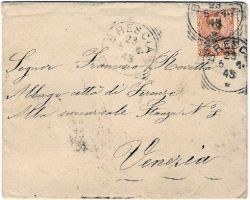 BRESCIA
23
5
45
BRESCIA
23
5
45
Signor Francesco Rovetta
Albergo città di Firenze
Alla succursale Stanza N 8
Venezia